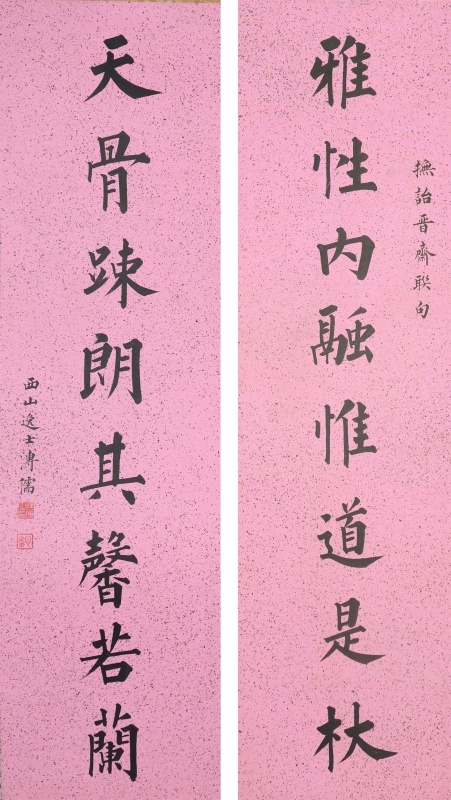 雅性内融惟道是杖
撫詒晋齋聯句
天骨踈朗其馨若蘭
西山逸士溥儒